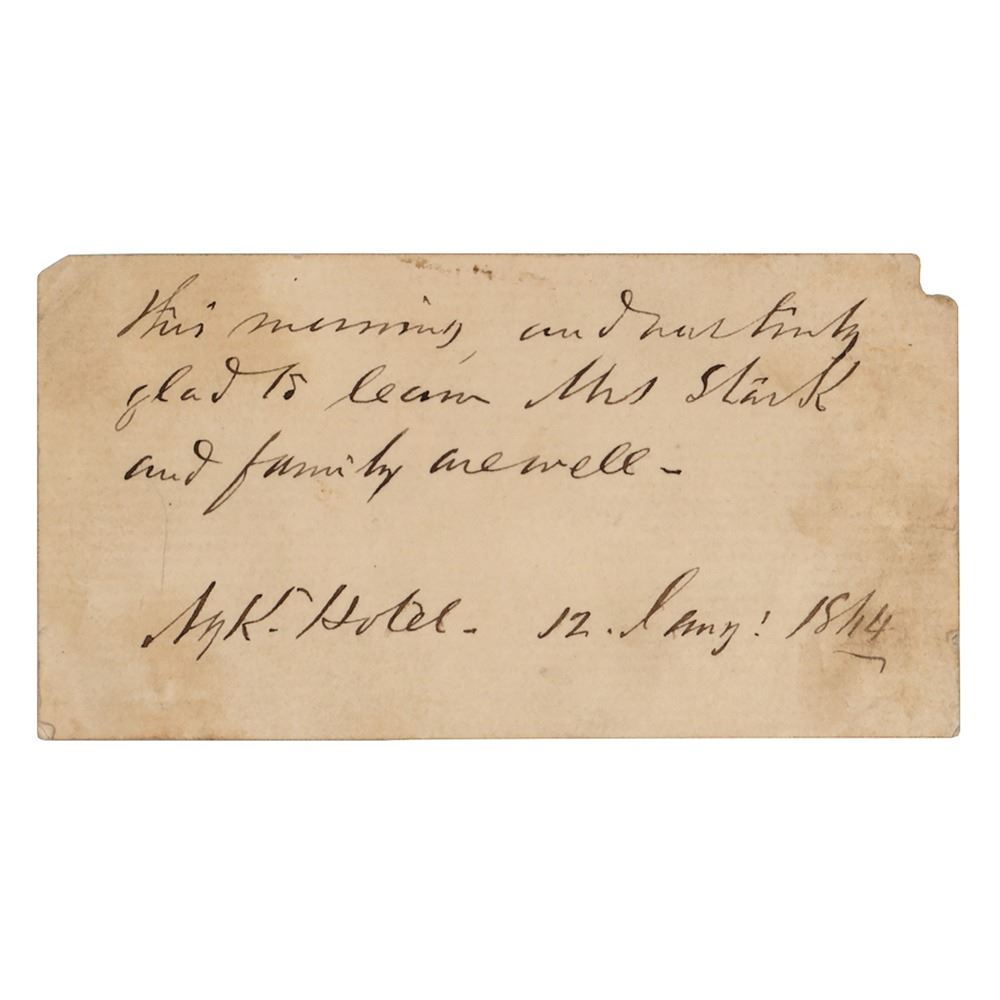 This morning, and was truly
glad to learn Mrs Stark
and family are well -
NyK. Hotel. 12. Jany: 1864